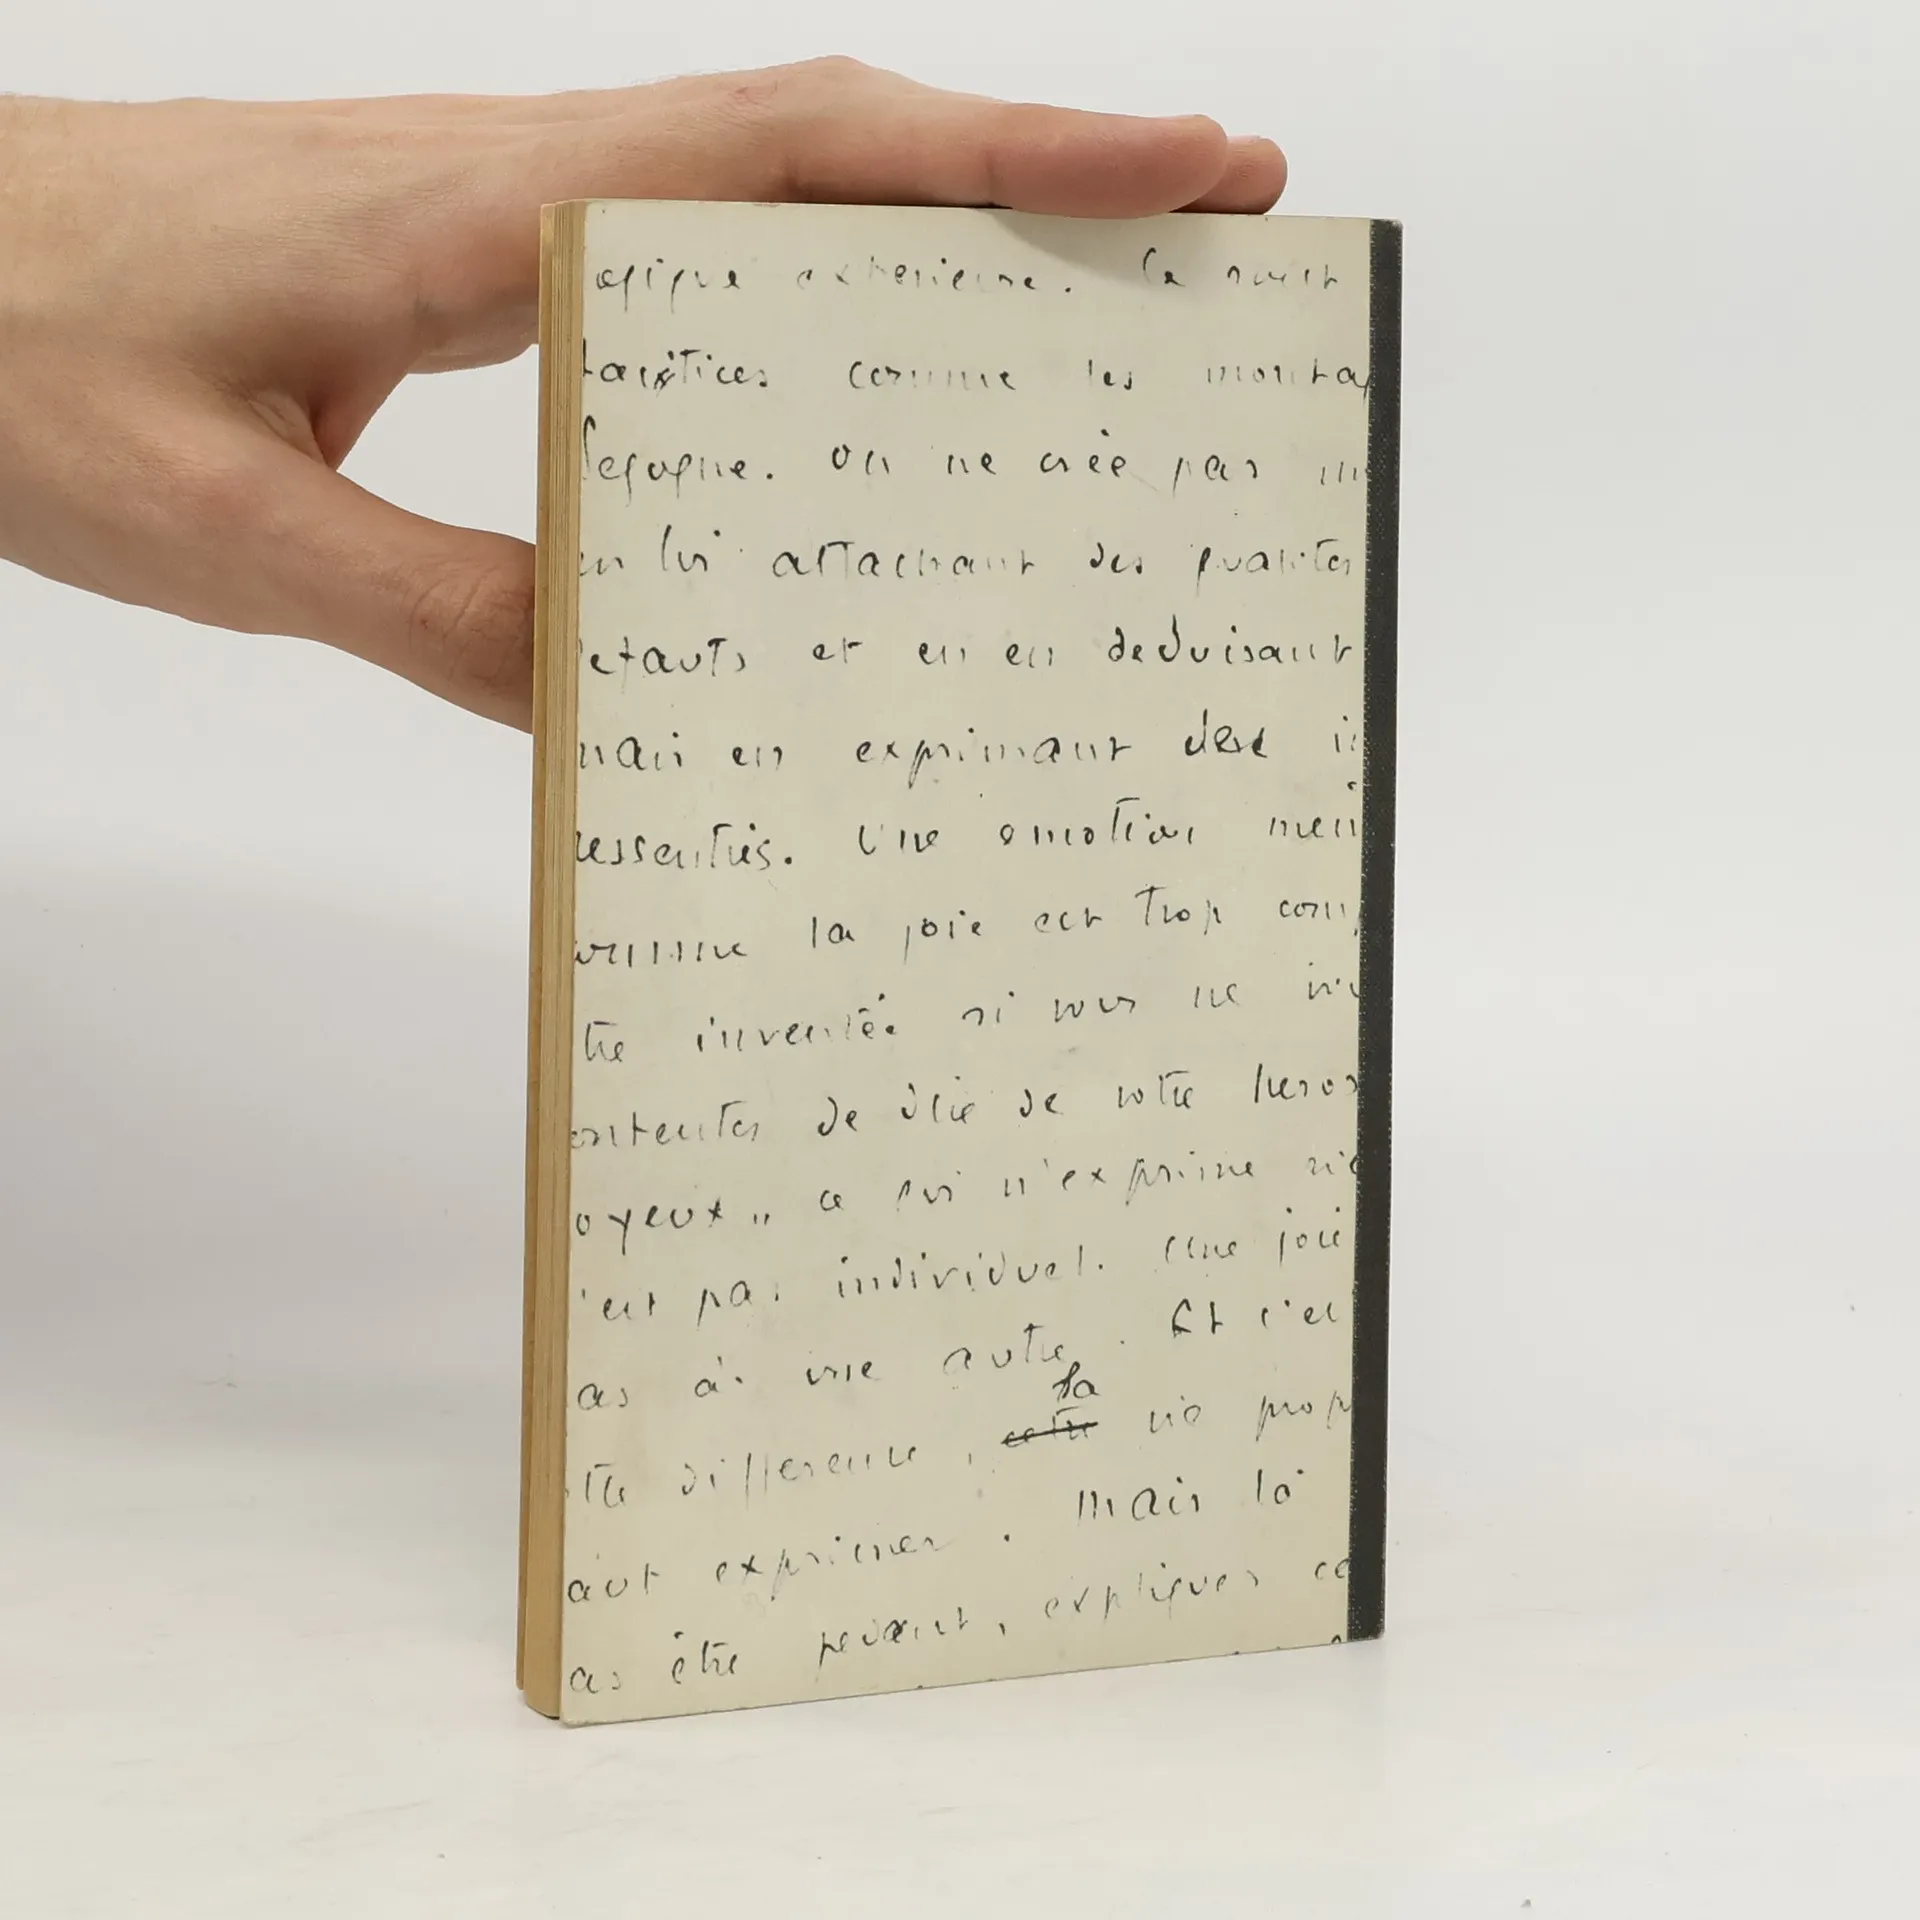 ogique exterieure. Ce sont
factices comme les monta
Gegogne. On ne crée pas un
en lui attachant des qualites
defauts et en en deduisant
mais en exprimant dere
ressenties. Une emotion men
comme la joie est trop comp
tre inventée si vous ne
ontentes de dire de votre heros
oyeux" ce qui n'exprime rie
'est pas individuel. Une joie
as à une autre. Et c'es
tte difference, cette sa vie prop
aut exprimer. Mais là
as être pedant, expliquer ce